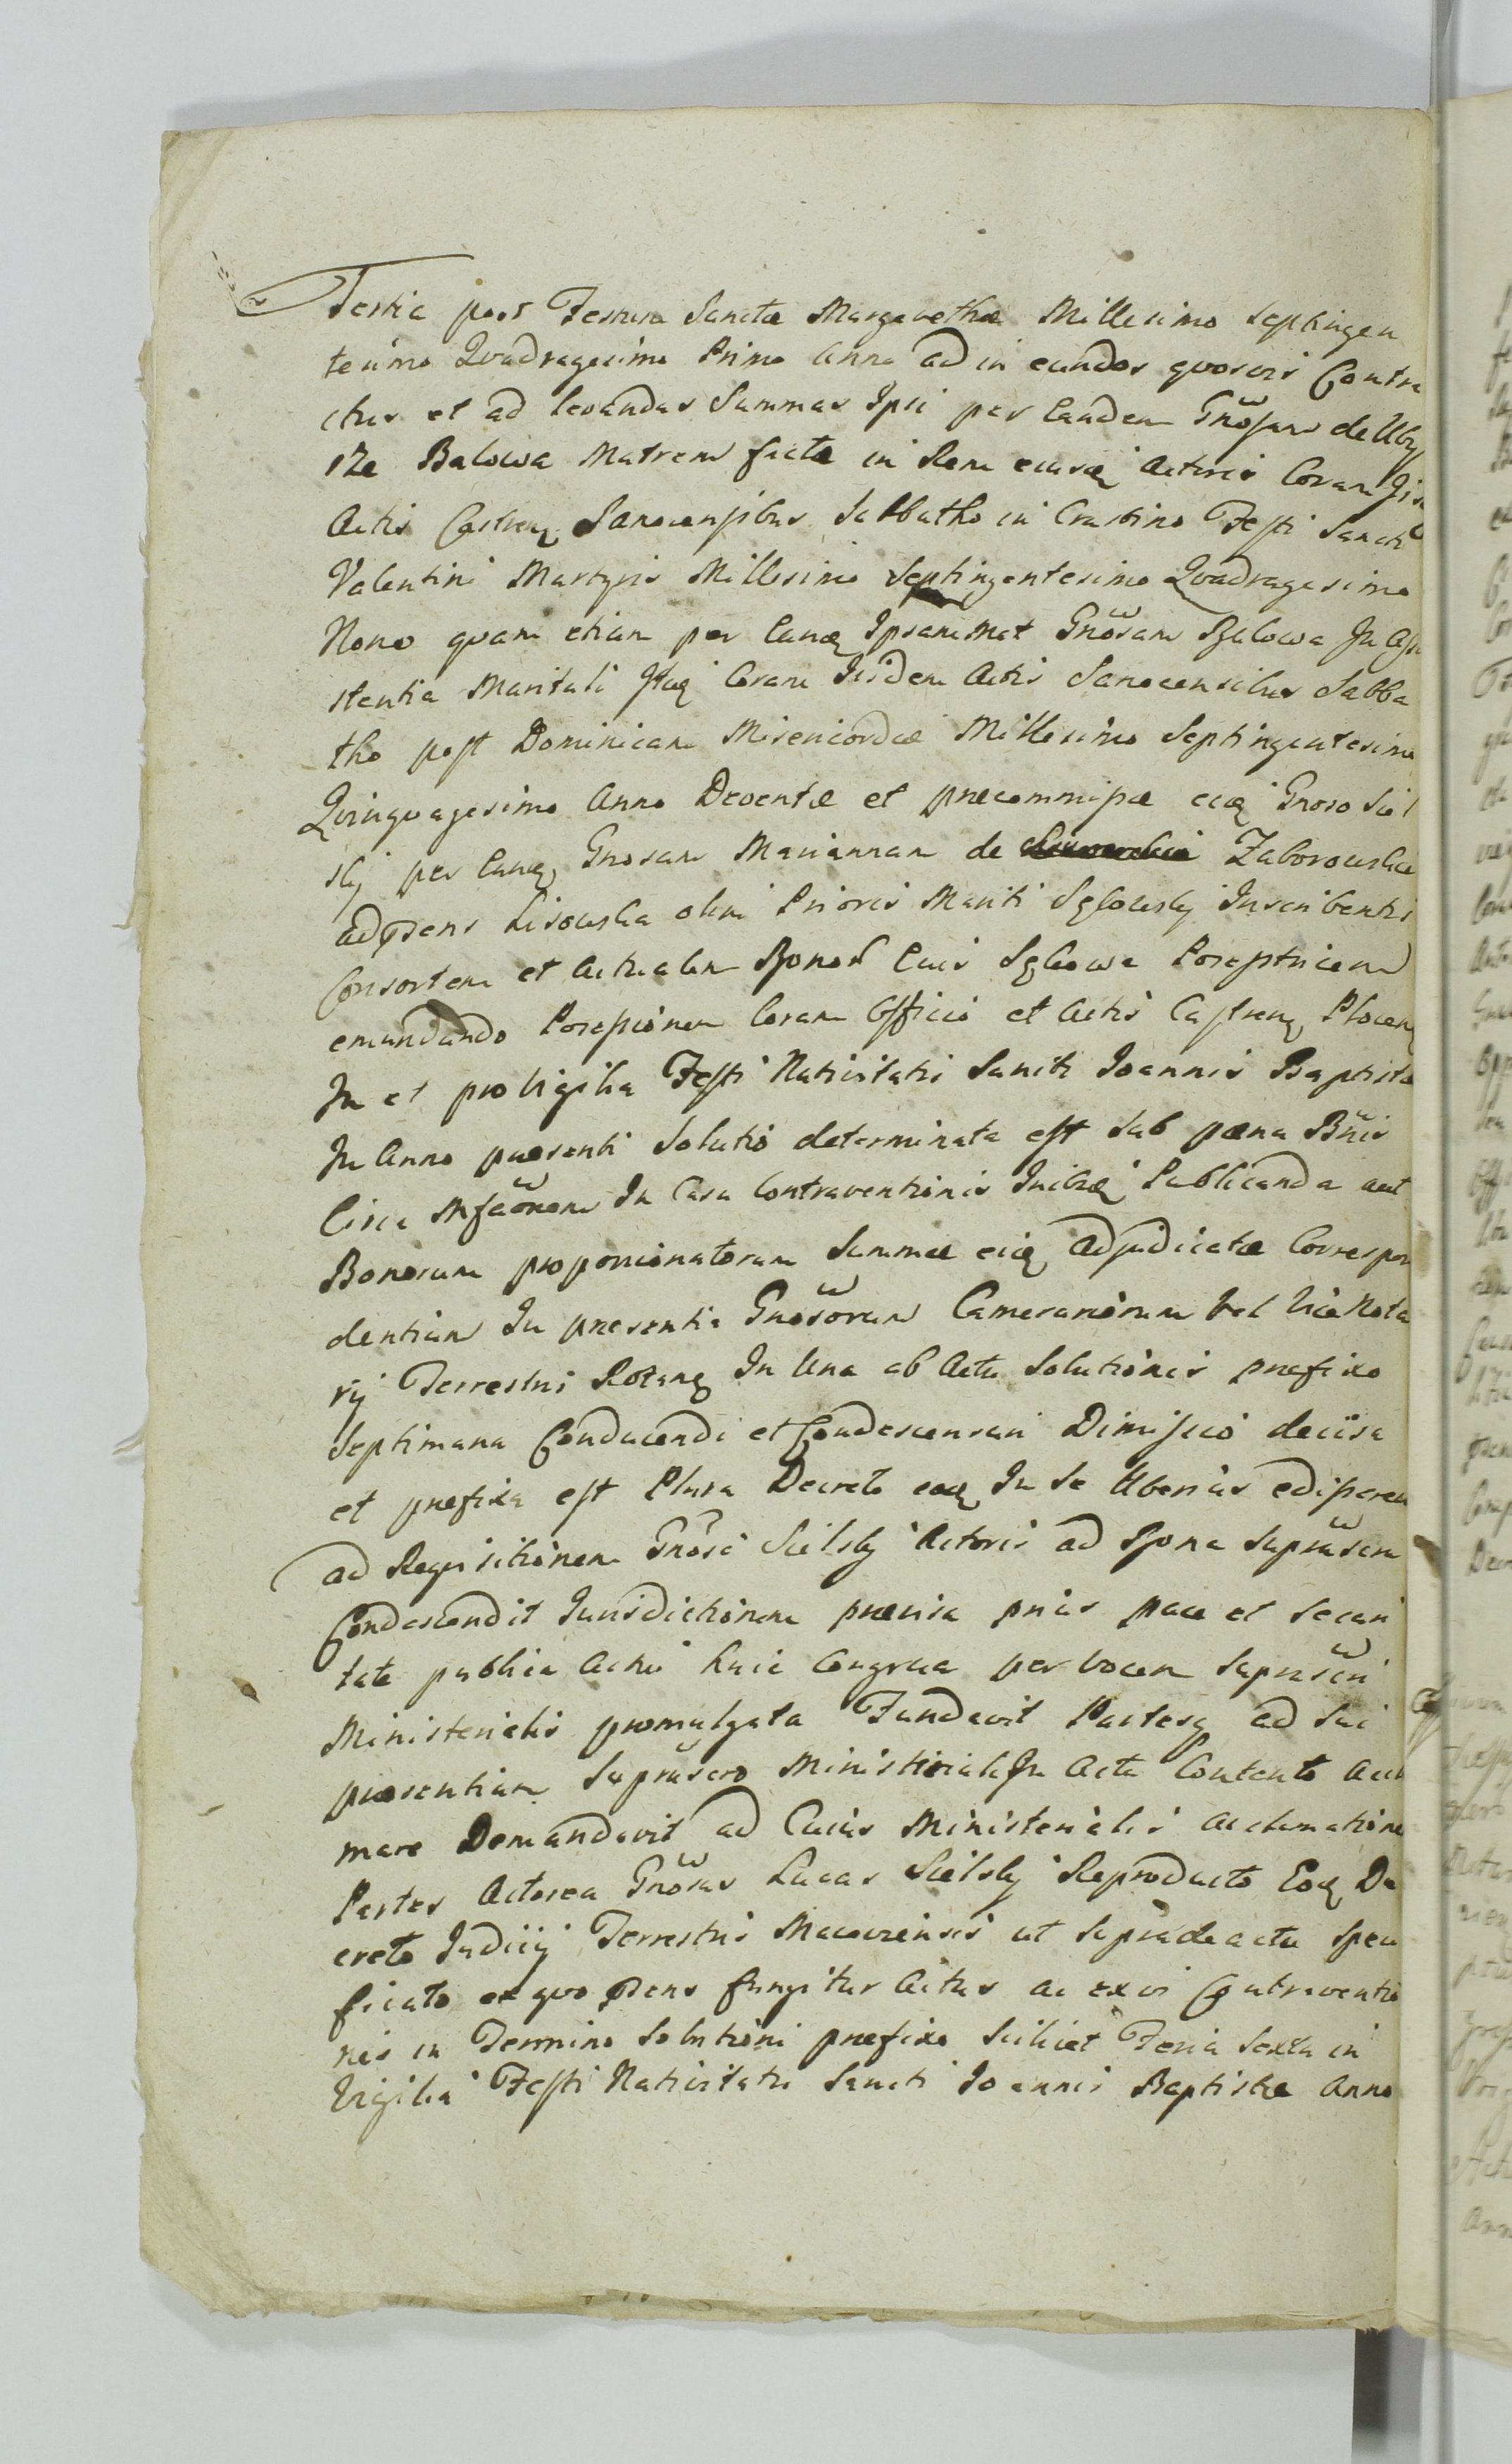 Tertia post Festum Sanctæ Margarethæ Millesimo Septingen
tesimo Qvadragesimo Primo Anno ad in eundos qvosvis Contra
ctus et ad levandas Summas Ipsi per Eandem Gnosam de Uby
sze Balowa Matrem factæ in Rem eiusq Actoris Coram
Actis Castren Sanocensibus Sabbatho in Crastino Festi Sancti
Valentini Martyris Millesimo Septingentesimo Qvadragesimo
Nono qvam etiam per Eanq Ipsammet Gnosam Balowa In Assi
stentia Maritali Itaq Coram Iisdem Actis Sanocensibus Sabba
tho post Dominicam Misericordiæ Millesimo Septingentesimo
Qvinqvagesimo Anno Deventæ et præcommissæ eiq Gnoso Siel
skj per Eanq Gnosam Mariannam de Zaborowskie
adpsens Lisowska olim Prioris Mariti Inscribentis
Consortem et Actualem Bonor Eius Possestricem
emundando Possessionem Coram Officio et Actis Castren Plocen
In et pro Vigilia Festi Nativitatis Sancti Joannis Baptistæ
In Anno præsenti Solutio determinata est Sub pæna Bnis
Circa Infaonem In Casu Contraventionis Inibiq Publicanda aut
Bonorum proporcionatorum Summæ eiq adjudicatæ Correspon
dentium In presentia Gnosorum Camerariorum vel Vice Nota
rij Terrestris Rozanq In Una ab Actu Solutionis prefixo
Septimana Conducendi et Condescensuri Dimissio decisa
et prefixa est Plura Decreto eoq In Se Uberius edisseren
ad Reqvisitionem Gnosi Sielskj Actoris ad Bona Suprascra
Condescendit Iurisdictionem prævia prius pace et Securi
tate publica Actui huic Congrua per vocem Suprascri
Ministerialis promulgata Fundavit Partesq ad Sui
præsentiam Suprascro Ministeriali In Actu Contento Accla
mare Demandavit ad Cuius Ministerialis acclamatione
Partes Actorea Gnosus Lucas Sielskj Reproducto Eoq De
creto Iudicij Terrestris Macoviensis ut Supra de actu Speci
ficato ex qvo psens fungitur Actus ac ex vi Contraventio
nis in Termino Solutioni prefixo Scilicet Feria Sexta in
Vigilia Festi Nativitatis Sancti Joannis Baptistæ Anno